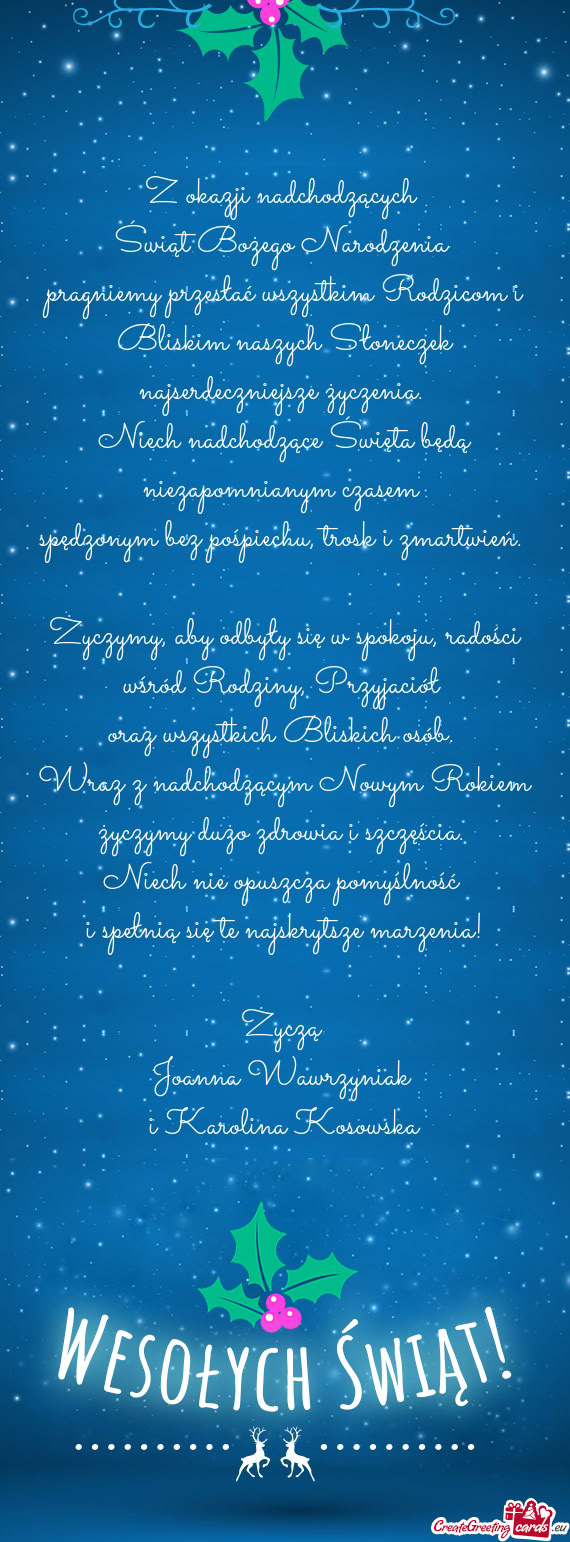 Z okazji nadchodzących
Świąt Bożego Narodzenia
pragniemy przesłać wszystkim Rodzicom i
Bliskim naszych Słoneczek
najserdeczniejsze życzenia.
Niech nadchodzące Święta będą
niezapomnianym czasem
spędzonym bez pośpiechu, trosk i zmartwień.
Życzymy, aby odbyły się w spokoju, radości
wśród Rodziny, Przyjaciół
oraz wszystkich Bliskich osób.
Wraz z nadchodzącym Nowym Rokiem
życzymy dużo zdrowia i szczęścia.
Niech nie opuszcza pomyślność
i spełnią się te najskrytsze marzenia!
Życzą
Joanna Wawrzyniak
i Karolina Kosowska
Wesołych Świąt!
CreateGreetingcards.eu